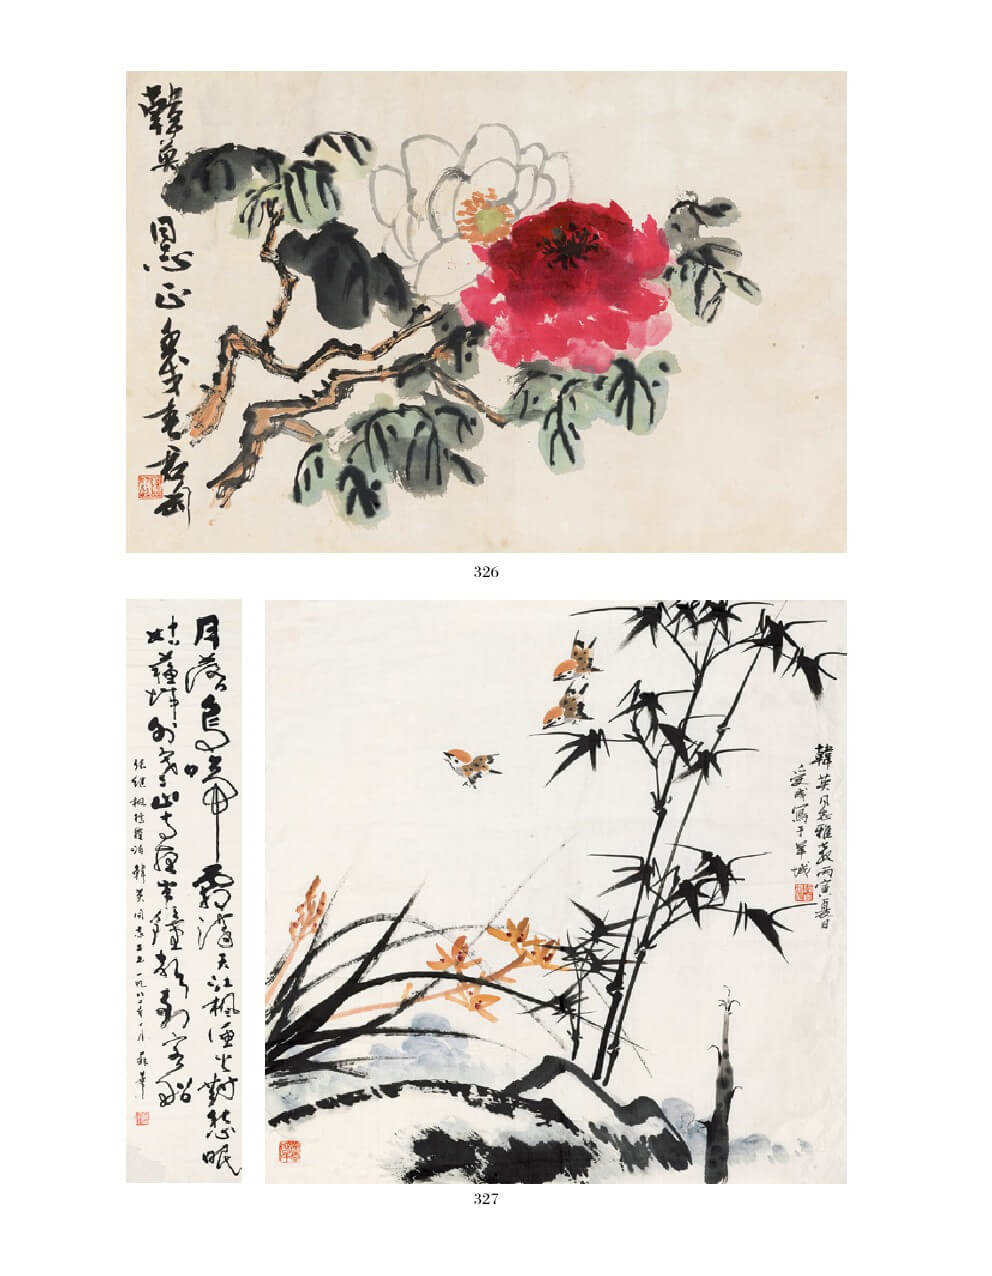 韓英同志正
326
月落烏啼霜滿天江枫渔火對愁眠
姑蘇城外寒山寺夜半鐘聲到客船
張继枫桥夜泊 韓英同志正之 一九八一年
韓英同志雅教丙寅夏日
愛成寫于羊城
327